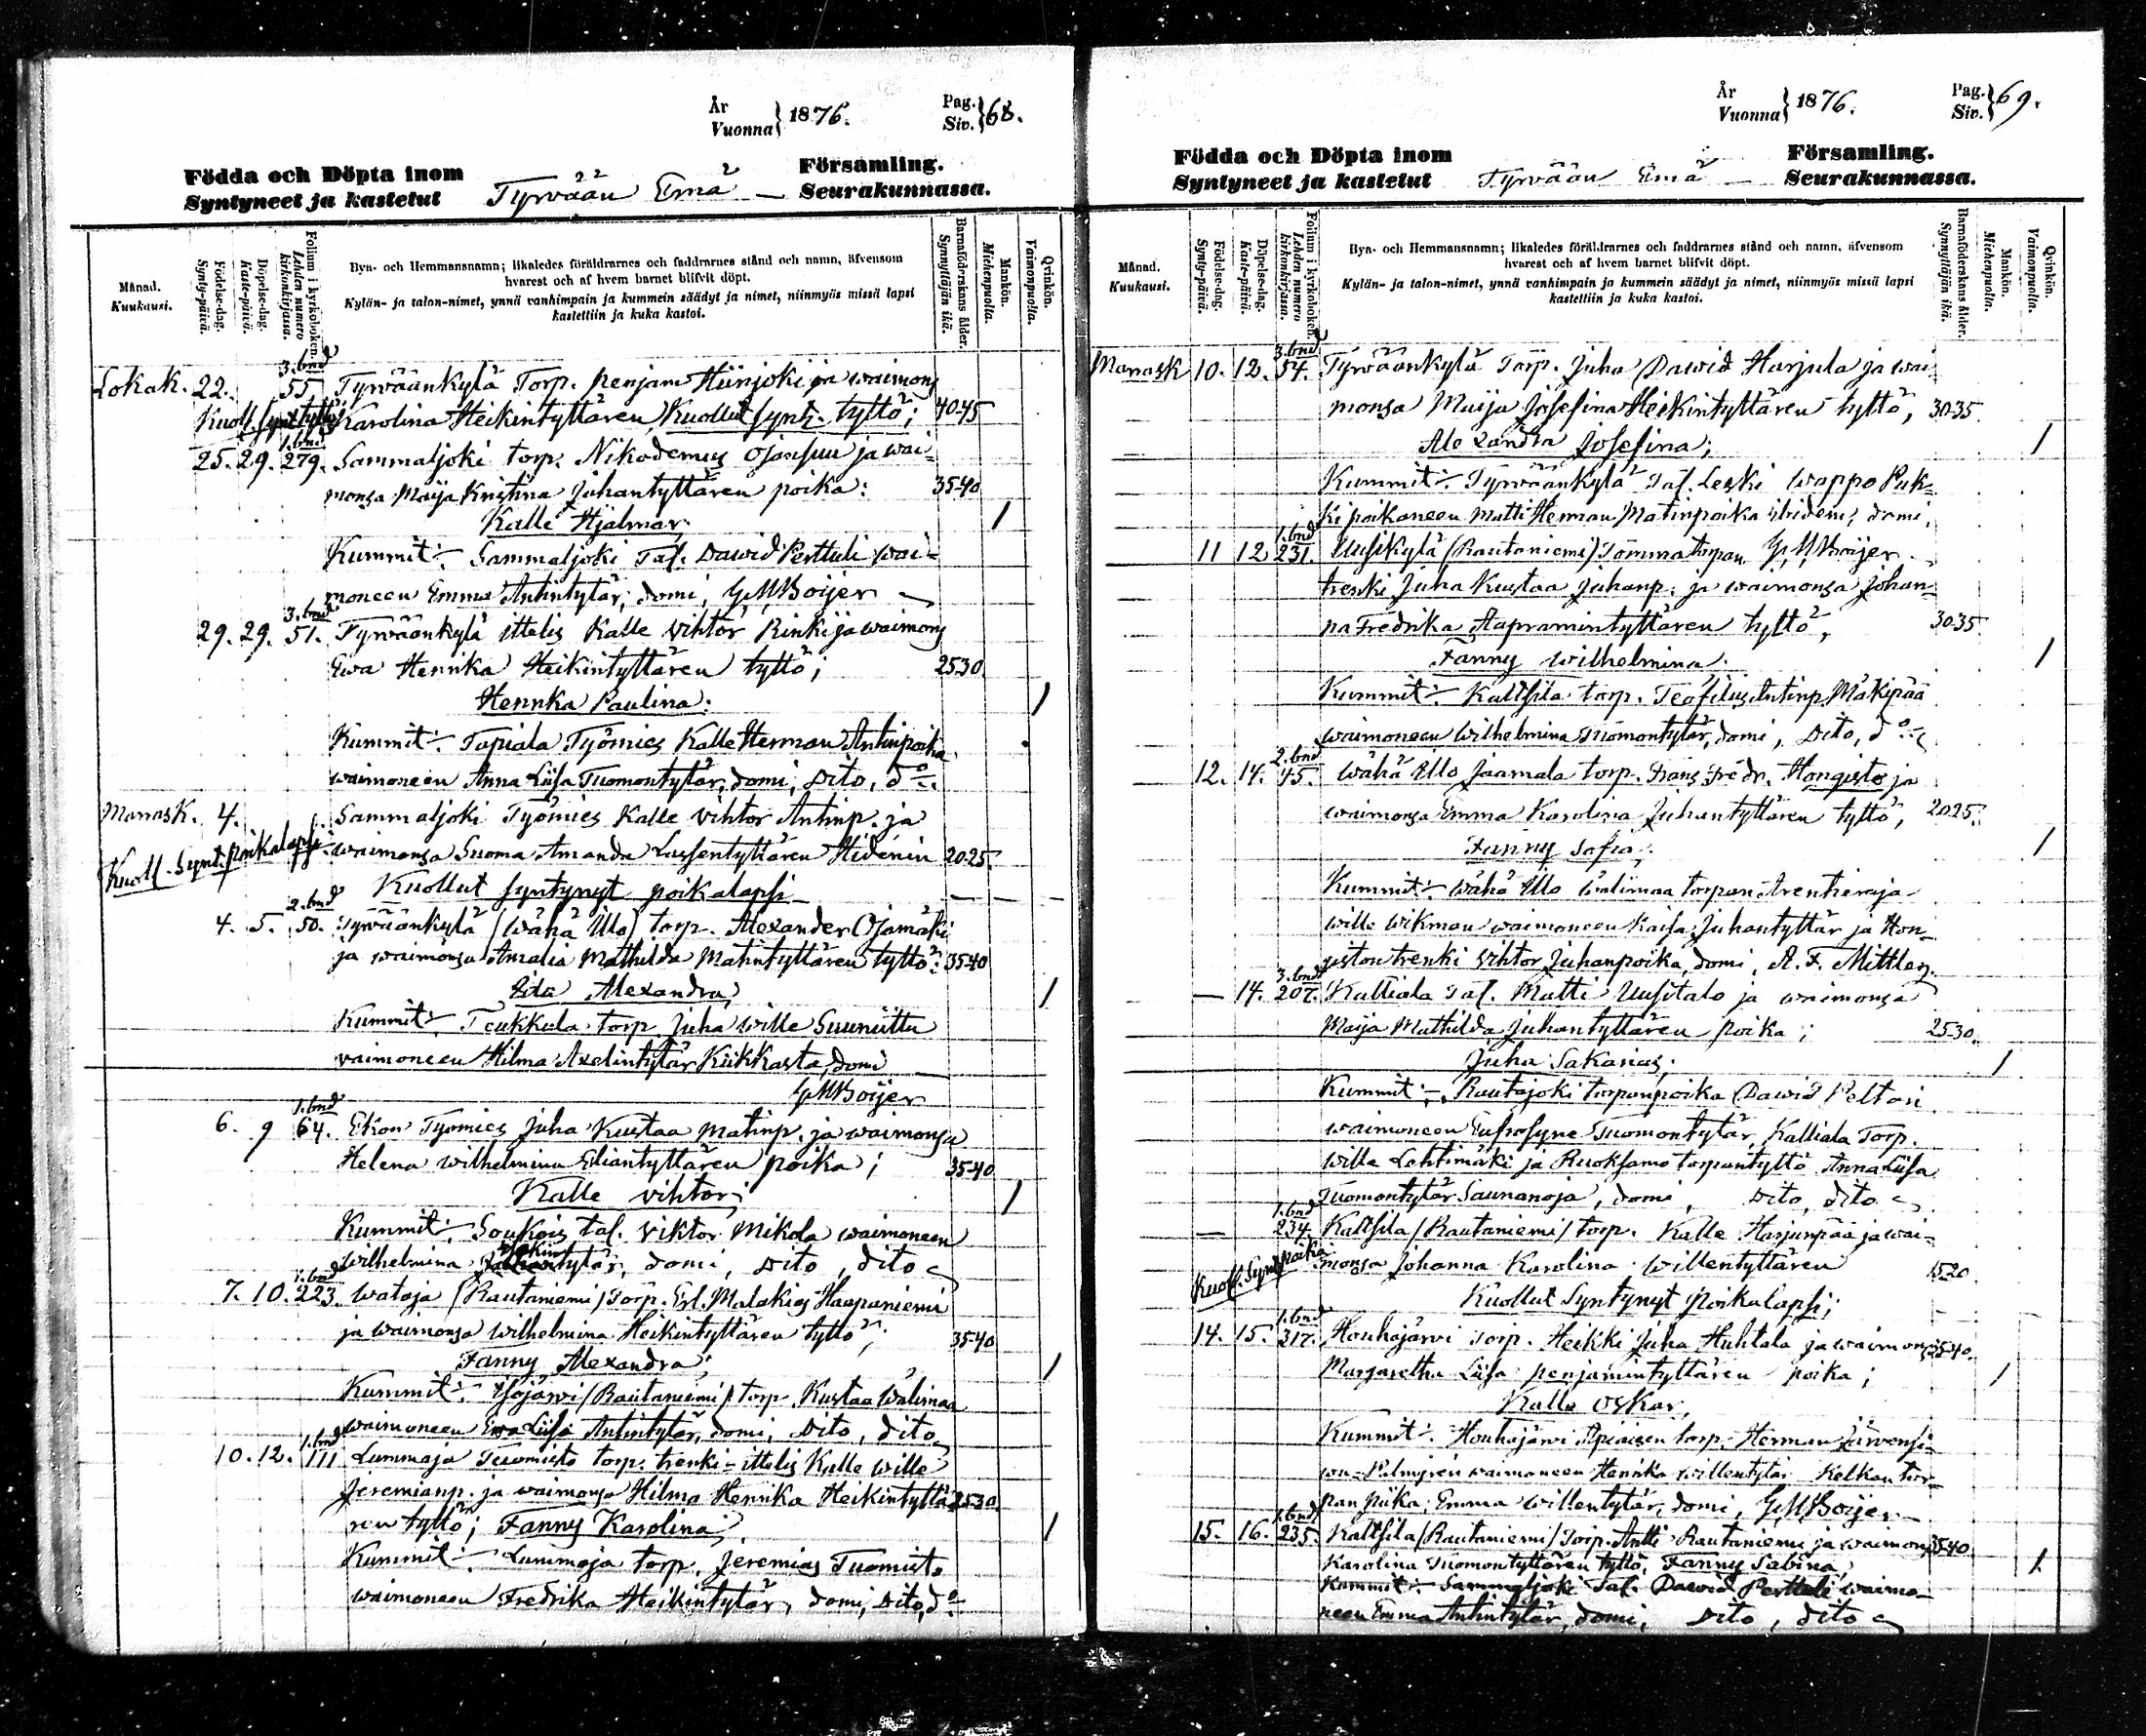 År
Vuonna } 1876.
Pag.
Siv. } 68.
Födda och Döpta inom
Syntyneet ja kastetut
Tyrvään Emä —
Församling.
Seurakunnassa.
Månad.
Kuukausi.
Födelse-dag.
Synty-päivä.
Döpelse-dag.
Kaste-päivä.
Folium i kyrkoboken.
Lehden numero kirkonkirjassa.
Byn- och Hemmansnamn; likaledes föräldrarnes och faddrarnes stånd och namn, äfvensom
hvarest och af hvem barnet blifvit döpt.
Kylän- ja talon-nimet, ynnä vanhimpain ja kummein säädyt ja nimet, niinmyös missä lapsi
kastettiin ja kuka kastoi.
Barnaföderskans ålder.
Synnyttäjän ikä.
Mankön.
Miehenpuolia.
Qvinkön.
Vaimonpuolia.
3. bnd
Lokak. 22. 55 Tyrväänkylä Torp. penjam Hiinjoki ja waimons
Kuoll. synt. tyttö Karolina Heikintyttären Kuollut synt. tyttö; 40-45
1. bnd
25. 29. 279. Sammaljoki torp. Nikodemus Ojansuu ja wai-
monsa Maija Kristina Juhantyttären poika: 35-40
Kalle Hjalmar; 1
Kummit:- Sammaljoki Tal. Dawid Perttuli wai-
moneen Emma Antintytär; domi, G M Boijer
3. bnd
29. 29. 51. Tyrväänkylä ittelis Kalle Vihtor Rinki ja waimons
Ewa Henrika Heikintyttären tyttö; 2530.
Henrika Paulina: 1
Kummit:- Tapiala Työmies Kalle Herman Antinpoika
waimoneen Anna Liisa Tuomontytär, domi, Dito, do
Marrask. 4. Sammaljoki Työmies Kalle Vihtor Antinp. ja
Kuoll. Synt. poikalapsi waimonsa Suoma Amanda Lassentyttären Hidenin 20-25.
Kuollut syntynyt poikalapsi
2. bnd
4. 5. 50. Tyrväänkylä (Wähä Ulo) torp. Alexander Ojamäki
ja waimonsa Amalia Mathilda Matintyttären tyttö: 35-40
Ida Alexandra; 1
Kummit:- Teukkula torp. Juha Wille Suuniittu
waimoneen Hilma Axelintytär Kiikkasta, domi
G M Boijer
1. bnd
6. 9 64. Ekon Työmies Juha Kustaa Matinp. ja waimonsa
Helena Wilhelmina Eliantyttären poika; 35-40
Kalle Vihtor; 1
Kummit:- Soukois tal. Viktor Mikola waimoneen
Wilhelmina tytär, domi, Dito, dito
1. bnd
7. 10. 223. Wataja (Rautaniemi) Torp. Erl. Malakias Haapaniemi
ja waimonsa Wilhelmina Heikintyttären tyttö; 35-40
Fanny Alexandra; 1
Kummit:- Yöjärvi (Rautaniemi) torp. Kustaa Wälimaa
waimoneen Ewa Liisa Antintytär, domi, Dito, dito
1. bnd
10. 12. 111 Lummaja Tuomisto torp. trenki-ittelis Kalle Wille
Jeremianp. ja waimonsa Hilma Henrika Heikintyttä- 2530.
ren tyttö; Fanny Karolina; 1
Kummit:- Lummaja torp. Jeremias Tuomisto
waimoneen Fredrika Heikintytär, domi, Dito, do
År
Vuonna } 1876.
Pag.
Siv. } 69.
Födda och Döpta inom
Syntyneet ja kastetut
Tyrvään Emä —
Församling.
Seurakunnassa.
Månad.
Kuukausi.
Födelse-dag.
Synty-päivä.
Döpelse-dag.
Kaste-päivä.
Folium i kyrkoboken.
Lehden numero kirkonkirjassa.
Byn- och Hemmansnamn; likaledes föräldrarnes och faddrarnes stånd och namn, äfvensom
hvarest och af hvem barnet blifvit döpt.
Kylän- ja talon-nimet, ynnä vanhimpain ja kummein säädyt ja nimet, niinmyös missä lapsi
kastettiin ja kuka kastoi.
Barnaföderskans ålder.
Synnyttäjän ikä.
Mankön.
Miehenpuolia.
Qvinkön.
Vaimonpuolia.
3. bnd
Marrask 10. 12. 54. Tyrväänkylä Torp. Juha Dawid Harjula ja wai-
monsa Maija Josefina Heikintyttären tyttö, 3035.
Alexandra Josefina; 1
Kummit:- Tyrväänkylä Tal. Leski Wappo Puk-
ki poikaneen Matti Herman Matinpoika ibidem, domi,
1. bnd
11 12 231. Uusikylä (Rautaniemi) Tommatorpan G M Boijer
trenki Juha Kustaa Juhanp. ja waimonsa Johan-
na Fredrika Aapramintyttären tyttö, 3035.
Fanny Wilhelmina. 1
Kummit:- Kaltsila torp. Teofilus Antinp. Mäkipää
waimoneen Wilhelmina Tuomontytär, domi, Dito, do
2. bnd
12. 14. 45. Wähä Ulo Jaamala torp. Frans Fredr. Hongisto ja
waimonsa Emma Karolina Juhantyttären tyttö, 2025.
Fanny Sofia; 1
Kummit:- Wähä Ulo Wälimaa torpan Arentieraja
Wille Wikman waimoneen Kaisa Juhantyttär ja Hon-
giston trenki Vihtor Juhanpoika, domi, A. F. Mittler.
3. bnd
— 14. 207. Kalliala Tal. Matti Uusitalo ja waimonsa
Maija Mathilda Juhantyttären poika; 2530.
Juha Sakarias; 1
Kummit:- Rautajoki torpanpoika Dawid Peltari
waimoneen Eufrosyne Tuomontytär, Kalliala Torp.
Wille Lehtimäki ja Ruoksamo torpantyttö Anna Liisa
Tuomontytär Saunanoja, domi, Dito, dito
1. bnd
— 234. Kaltsila (Rautaniemi) torp. Kalle Harjunpää ja wai-
Kuoll. Synt. poika monsa Johanna Karolina Willentyttären 1520.
Kuollut Syntynyt poikalapsi;
1. bnd
14. 15. 317. Houhajärvi Torp. Heikki Juha Huhtala ja waimonsa 3540.
Margaretha Liisa penjamintyttären poika; 1
Kalle Oskar,
Kummit:- Houhajärvi torp. Herman Järvensi-
wu-Palmgren waimoneen Henrika Willentytär Kelkan tor-
pan piika, Emma Willentytär, domi, G M Boijer
1. bnd
15. 16. 235. Kaltsila (Rautaniemi) Torp. Antti Rautaniemi ja waimons 3540
Karolina Tuomontyttären tyttö, Fanny Sabina, 1.
Kummit:- Sammaljoki Tal. Dawid Perttuli waimo-
neen Emma Antintytär, domi, Dito, dito